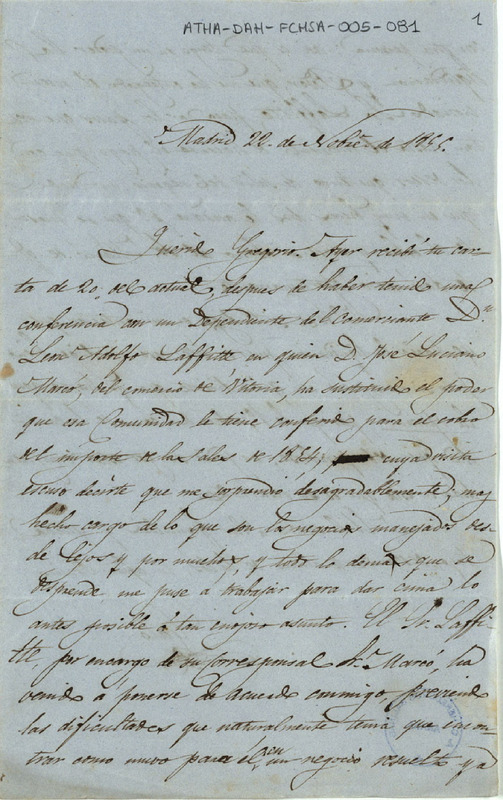 ATHA-DAH-FCHSA-005-081
1
Madrid 22. de Nobre. de 1855.
Querido Gregorio. Ayer recibí tu car-
ta de 20. del actual, despues de haber tenido una
conferencia con un Dependiente del Comerciante Dn.
Leon Adolfo Laffitte en quien D. José Luciano
Marcó, del comercio de Vitoria, ha sustituido el poder
que esa Comunidad le tiene conferido para el cobro
del importe de las Sales de 1854; cuya visita
escuso decirte que me sorprendió desagradablemente; mas
hecho cargo de lo que son los negocios manejados des-
de lejos y por muchos, y todo lo demas que se
desprende me puse á trabajar para dar cima lo
antes posible á tan enojoso asunto. El Sr. Laffi-
tte, por encargo de su corresponsal Sr. Marcó, ha
venido á ponerse de acuerdo conmigo, previendo
las dificultades que naturalmente tenia que encon-
trar como nuevo para él en un negocio resuelto ya